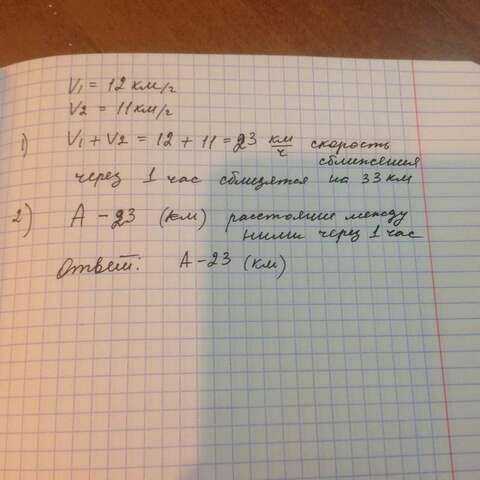 V1 = 12 км/г
V2 = 11 км/г
1) V1 + V2 = 12 + 11 = 23 км/ч скорость
сближения
через 1 час сблизятся на 33 км
2) А - 23 (км) расстояние между
ними через 1 час
Ответ: А - 23 (км)